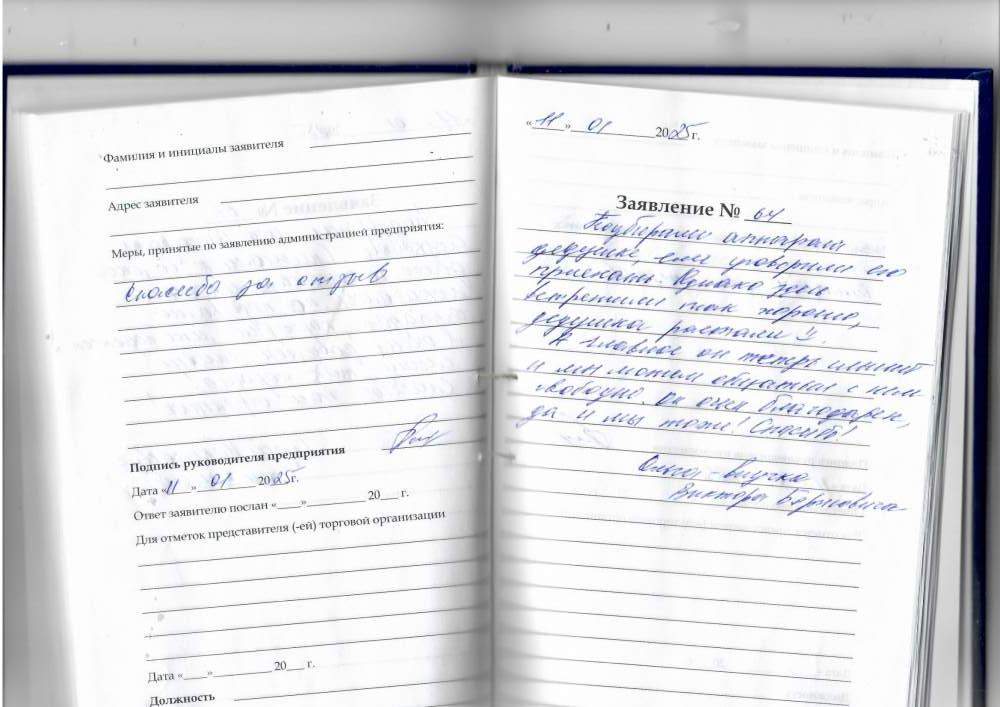 Фамилия и инициалы заявителя
Адрес заявителя
Меры, принятые по заявлению администрацией предприятия:
Спасибо за отзыв
Подпись руководителя предприятия
Дата «11» 01 2025г.
Ответ заявителю послан «____»__________ 20___ г.
Для отметок представителя (-ей) торговой организации
Дата «____»__________ 20___ г.
Должность
«11» 01 2025г.
Заявление № 64
Подбирали аппарат
дедушке, еле уговорили его
приехать. Однако здесь
встретили так хорошо,
дедушка растаял :).
А главное он теперь слышит
и мы можем общаться с ним
свободно. Он очень благодарен,
да и мы тоже! Спасибо!
Ольга - внучка
Виктора